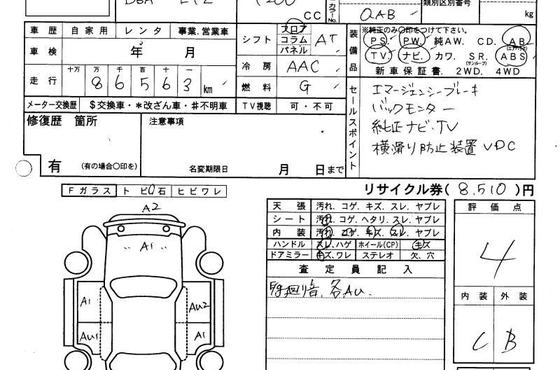 DBA E12 1200 CC
QAB 類別区分番号
車歴 自家用 レンタ 事業.営業車
シフト フロア コラム パネル AT
装備品 ※純正のみ○印をつけて下さい。
PS PW 純AW. CD. AB
TV ナビ. カワ. SR. ABS
(サンルーフ)
新車保証書. 2WD. 4WD
車検 年 月
冷房 AAC
走行 十万 万 千 百 十
8 6 5 6 3 km
燃料 G
メーター交換歴 $交換車・*改ざん車・#不明車
TV聴視 可・不可
セールスポイント
エマージェンシーブレーキ
バックモニター
純正ナビ.TV
横滑り防止装置 VDC
修復歴 箇所
注意事項
有 (有の場合○印を)
名変期限日 月 日まで
Fガラス トビ石 ヒビワレ
リサイクル券(8,510)円
A2
A1
A1
AU2
AU1
A1
天張 汚れ. コゲ. キズ. スレ. ヤブレ
シート 汚れ. コゲ. ヘタリ. スレ. ヤブレ
内装 汚れ. コゲ. キズ. スレ. ヤブレ
ハンドル スレ.ハゲ ホイール(CP) キズ
ドアミラー キズ.ワレ ステレオ 欠. 穴
評価点
4
内装 外装
C B
査定員記入
各AU.